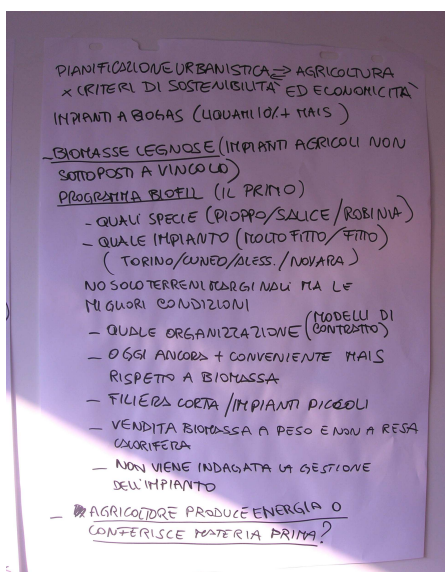 PIANIFICAZIONE URBANISTICA ⇒ AGRICOLTURA
x CRITERI DI SOSTENIBILITÀ ED ECONOMICITÀ
IMPIANTI A BIOGAS (LIQUAMI 10% + MAIS)
- BIOMASSE LEGNOSE (IMPIANTI AGRICOLI NON
SOTTOPOSTI A VINCOLO)
PROGRAMMA BIOFIL (IL PRIMO)
- QUALI SPECIE (PIOPPO/SALICE/ROBINIA)
- QUALE IMPIANTO (MOLTO FITTO/FITTO)
(TORINO/CUNEO/ALESS./NOVARA)
NO SOLO TERRENI MARGINALI MA LE
MIGLIORI CONDIZIONI
- QUALE ORGANIZZAZIONE (MODELLI DI
CONTRATTO)
- OGGI ANCORA + CONVENIENTE MAIS
RISPETTO A BIOMASSA
- FILIERA CORTA / IMPIANTI PICCOLI
- VENDITA BIOMASSA A PESO E NON A RESA
CALORIFERA
- NON VIENE INDAGATA LA GESTIONE
DELL'IMPIANTO
- AGRICOLTORE PRODUCE ENERGIA O
CONFERISCE MATERIA PRIMA?